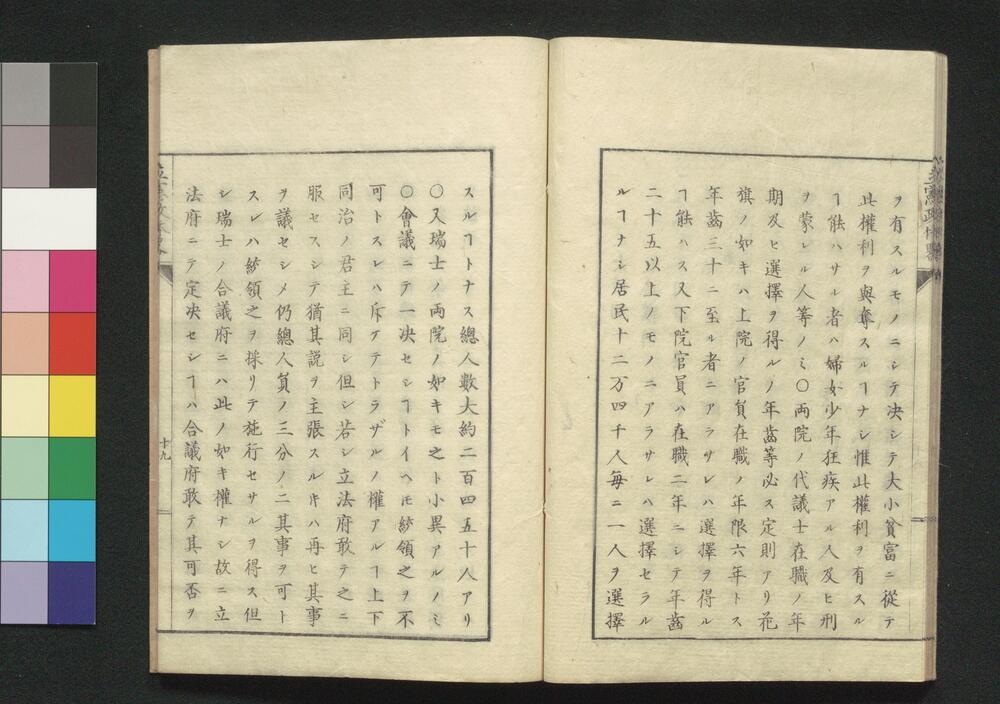 ヲ有スルモノニシテ决シテ大小貧富ニ從テ
此權利ヲ與奪スルヿナシ惟此權利ヲ有スル
ヿ能ハサル者ハ婦女少年狂疾アル人及ヒ刑
ヲ蒙レル人等ノミ〇両院ノ代議士在職ノ年
期及ヒ選擇ヲ得ルノ年齒等必ス定則アリ花
旗ノ如キハ上院ノ官負在職ノ年限六年トス
年齒三十ニ至ル者ニアラサレハ選擇ヲ得ル
ヿ能ハス又下院官員ハ在職二年ニシテ年齒
二十五以上ノモノニアラサレハ選擇セラル
ルヿナシ居民十二万四千人毎ニ一人ヲ選擇
スルヿトナス總人數大約二百四五十人アリ
〇又瑞士ノ両院ノ如キモ之ト小異アルノミ
〇會議ニテ一决セシヿトイヘ𪜈統領之ヲ不
可トスレハ斥ケテトラザルノ權アルヿ上下
同治ノ君主ニ同シ但シ若シ立法府敢テ之ニ
服セスシテ猶其説ヲ主張スルキハ再ヒ其事
ヲ議セシメ仍總人負ノ三分ノ二其事ヲ可ト
スレハ統領之ヲ採リテ施行セサルヲ得ス但
シ瑞士ノ合議府ニハ此ノ如キ權ナシ故ニ立
法府ニテ定决セシヿハ合議府敢テ其可否ヲ
十九